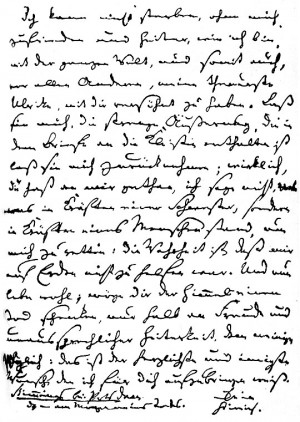 Ich kann nicht sterben, ohne mich,
zufrieden und heiter, wie ich bin,
mit der ganzen Welt, und somit auch,
vor allen Anderen, meine theuerste
Ulrike, mit dir versöhnt zu haben. Laß
sie mich, die strenge Äußerung, die in
dem Briefe an die Kleisten enthalten ist
laß sie mich zurücknehmen; wirklich,
du hast an mir gethan, ich sage nicht, was
in Kräften einer Schwester, sondern
in Kräften eines Menschen stand, um
mich zu retten: die Wahrheit ist, daß mir
auf Erden nicht zu helfen war. Und nun
lebe wohl; möge dir der Himmel einen
Tod schenken, nur halb an Freude und
unaussprechlicher Heiterkeit, dem meinigen
gleich: das ist der herzlichste und innigste
Wunsch, den ich für dich aufzubringen weiß.
Stimmings bei Potsdam Dein
d. – am Morgen meines Todes. Heinrich.